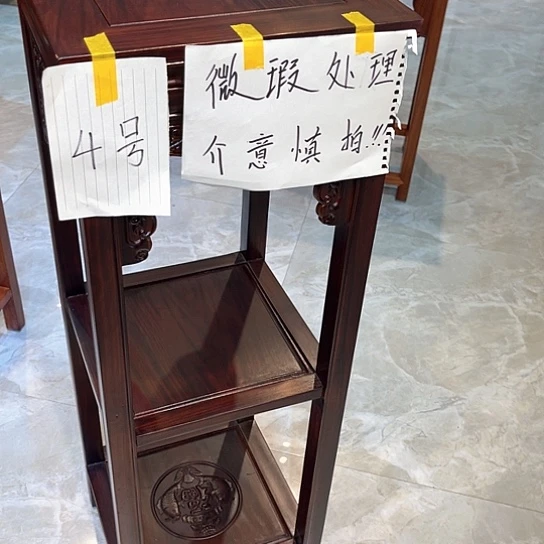 4号
微瑕处理
介意慎拍!!!